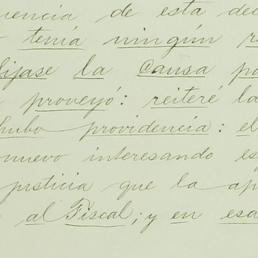 uencia de esta dec
tenía ningun r
íjase la Causa po
proveyó: reiteré la
hubo providencia: el
nuevo interesando es
justicia que la ap
al Fiscal; y en esa